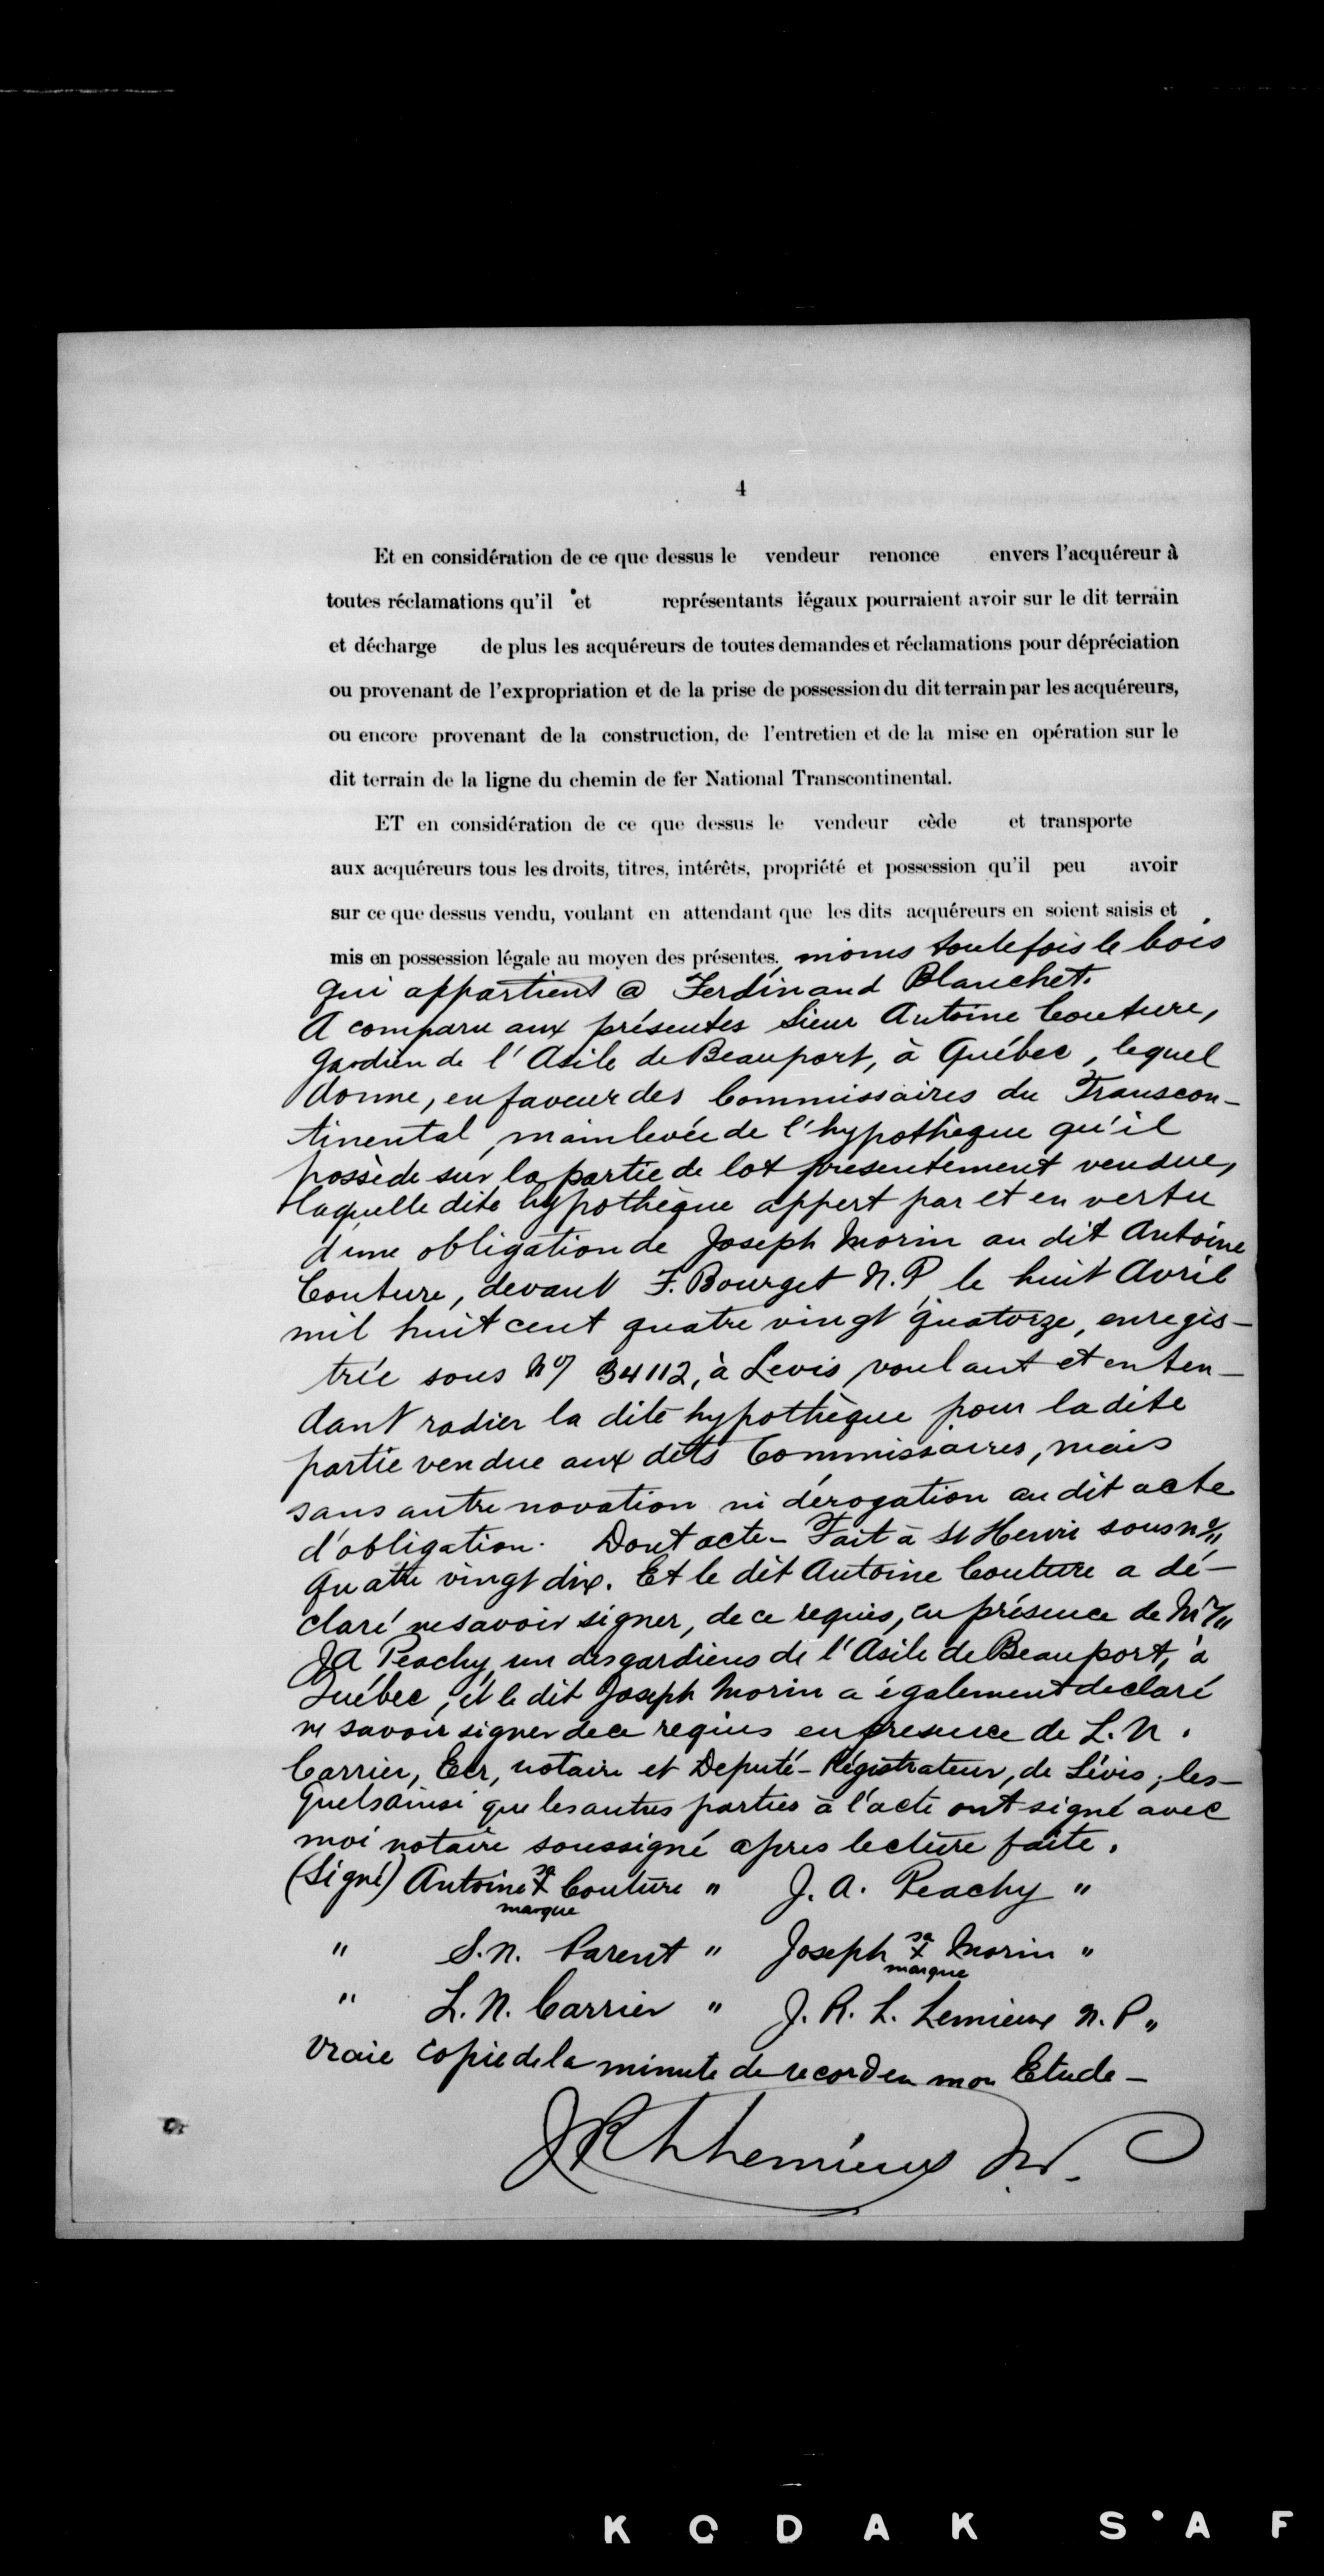 4
Et en considération de ce que dessus le vendeur renonce envers l'acquéreur à
toutes réclamations qu'il et représentants légaux pourraient avoir sur le dit terrain
et décharge de plus les acquéreurs de toutes demandes et réclamations pour dépréciation
ou provenant de l'expropriation et de la prise de possession du dit terrain par les acquéreurs,
ou encore provenant de la construction, de l'entretien et de la mise en opération sur le
dit terrain de la ligne du chemin de fer National Transcontinental.
ET en considération de ce que dessus le vendeur cède et transporte
aux acquéreurs tous les droits, titres, intérêts, propriété et possession qu'il peu avoir
sur ce que dessus vendu, voulant en attendant que les dits acquéreurs en soient saisis et
mis en possession légale au moyen des présentes, moins toutefois le bois
qui appartient @ Ferdinand Blanchet.
A comparu aux présentes Sieur Antoine Couture,
gardien de l'Asile de Beauport, à Québec, lequel
donne, en faveur des Commissaires du Transcon-
tinental, mainlevée de l'hypothèque qu'il
possède sur la partie de lot présentement vendue,
laquelle dite hypothèque appert par et en vertu
d'une obligation de Joseph Morin au dit Antoine
Couture, devant F. Bourget N.P, le huit Avril
mil huit cent quatre vingt quatorze, enregis-
trée sous No 34112, à Levis, voulant et enten-
dant radier la dite hypothèque pour la dite
partie vendue aux dits Commissaires, mais
sans autre novation ni dérogation au dit acte
d'obligation. Dont acte- Fait à St Henri sous no
quatre vingt dix. Et le dit Antoine Couture a dé-
claré ne savoir signer, de ce requis, en présence de Mr
JA Peachy, un des gardiens de l'Asile de Beauport, à
Québec, et le dit Joseph Morin a également declaré
ne savoir signer de ce requis en presence de L. N.
Carrier, Ecr, notaire et Deputé-Régistrateur, de Lévis; les-
quels ainsi que les autres parties à l'acte ont signé avec
moi notaire soussigné apres lecture faite.
(Signé) Antoine sa X marque Couture " J. A. Peachy "
" S. N. Parent " Joseph sa X marque Morin "
" L. N. Carrier " J. R. L. Lemieux N. P "
Vraie copie de la minute de record en mon Etude -
JRLLemieux N.P.
KODAK S•AF